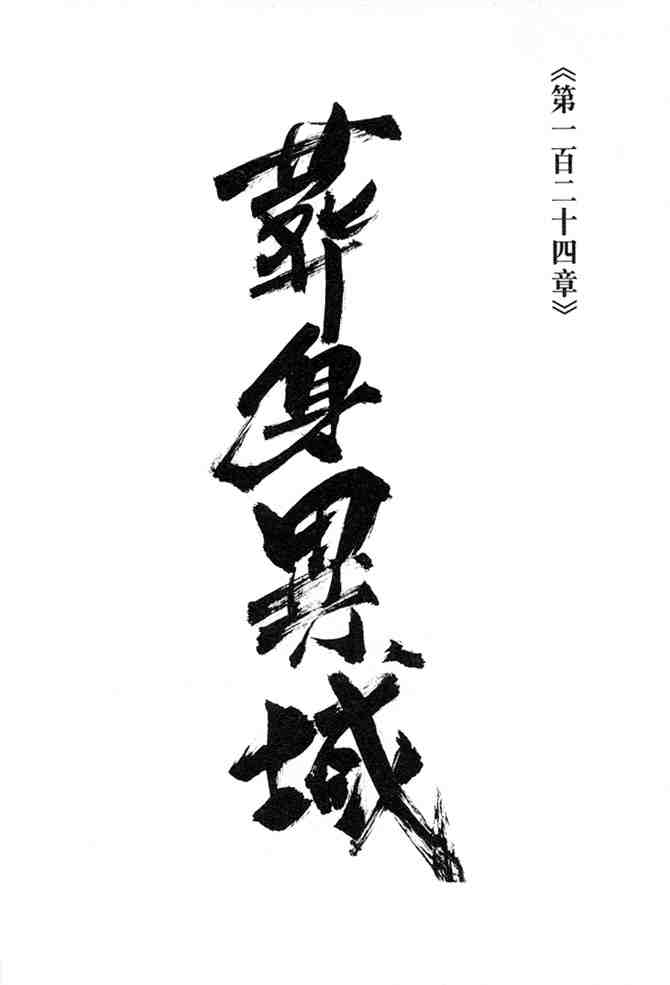 《第一百二十四章》
葬身異域